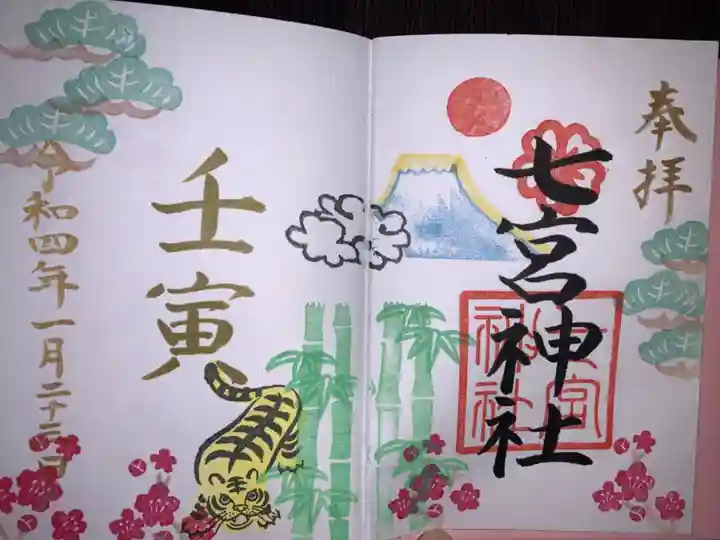 奉拝
七宮神社
七宮
神社
壬寅
令和四年一月二十三日